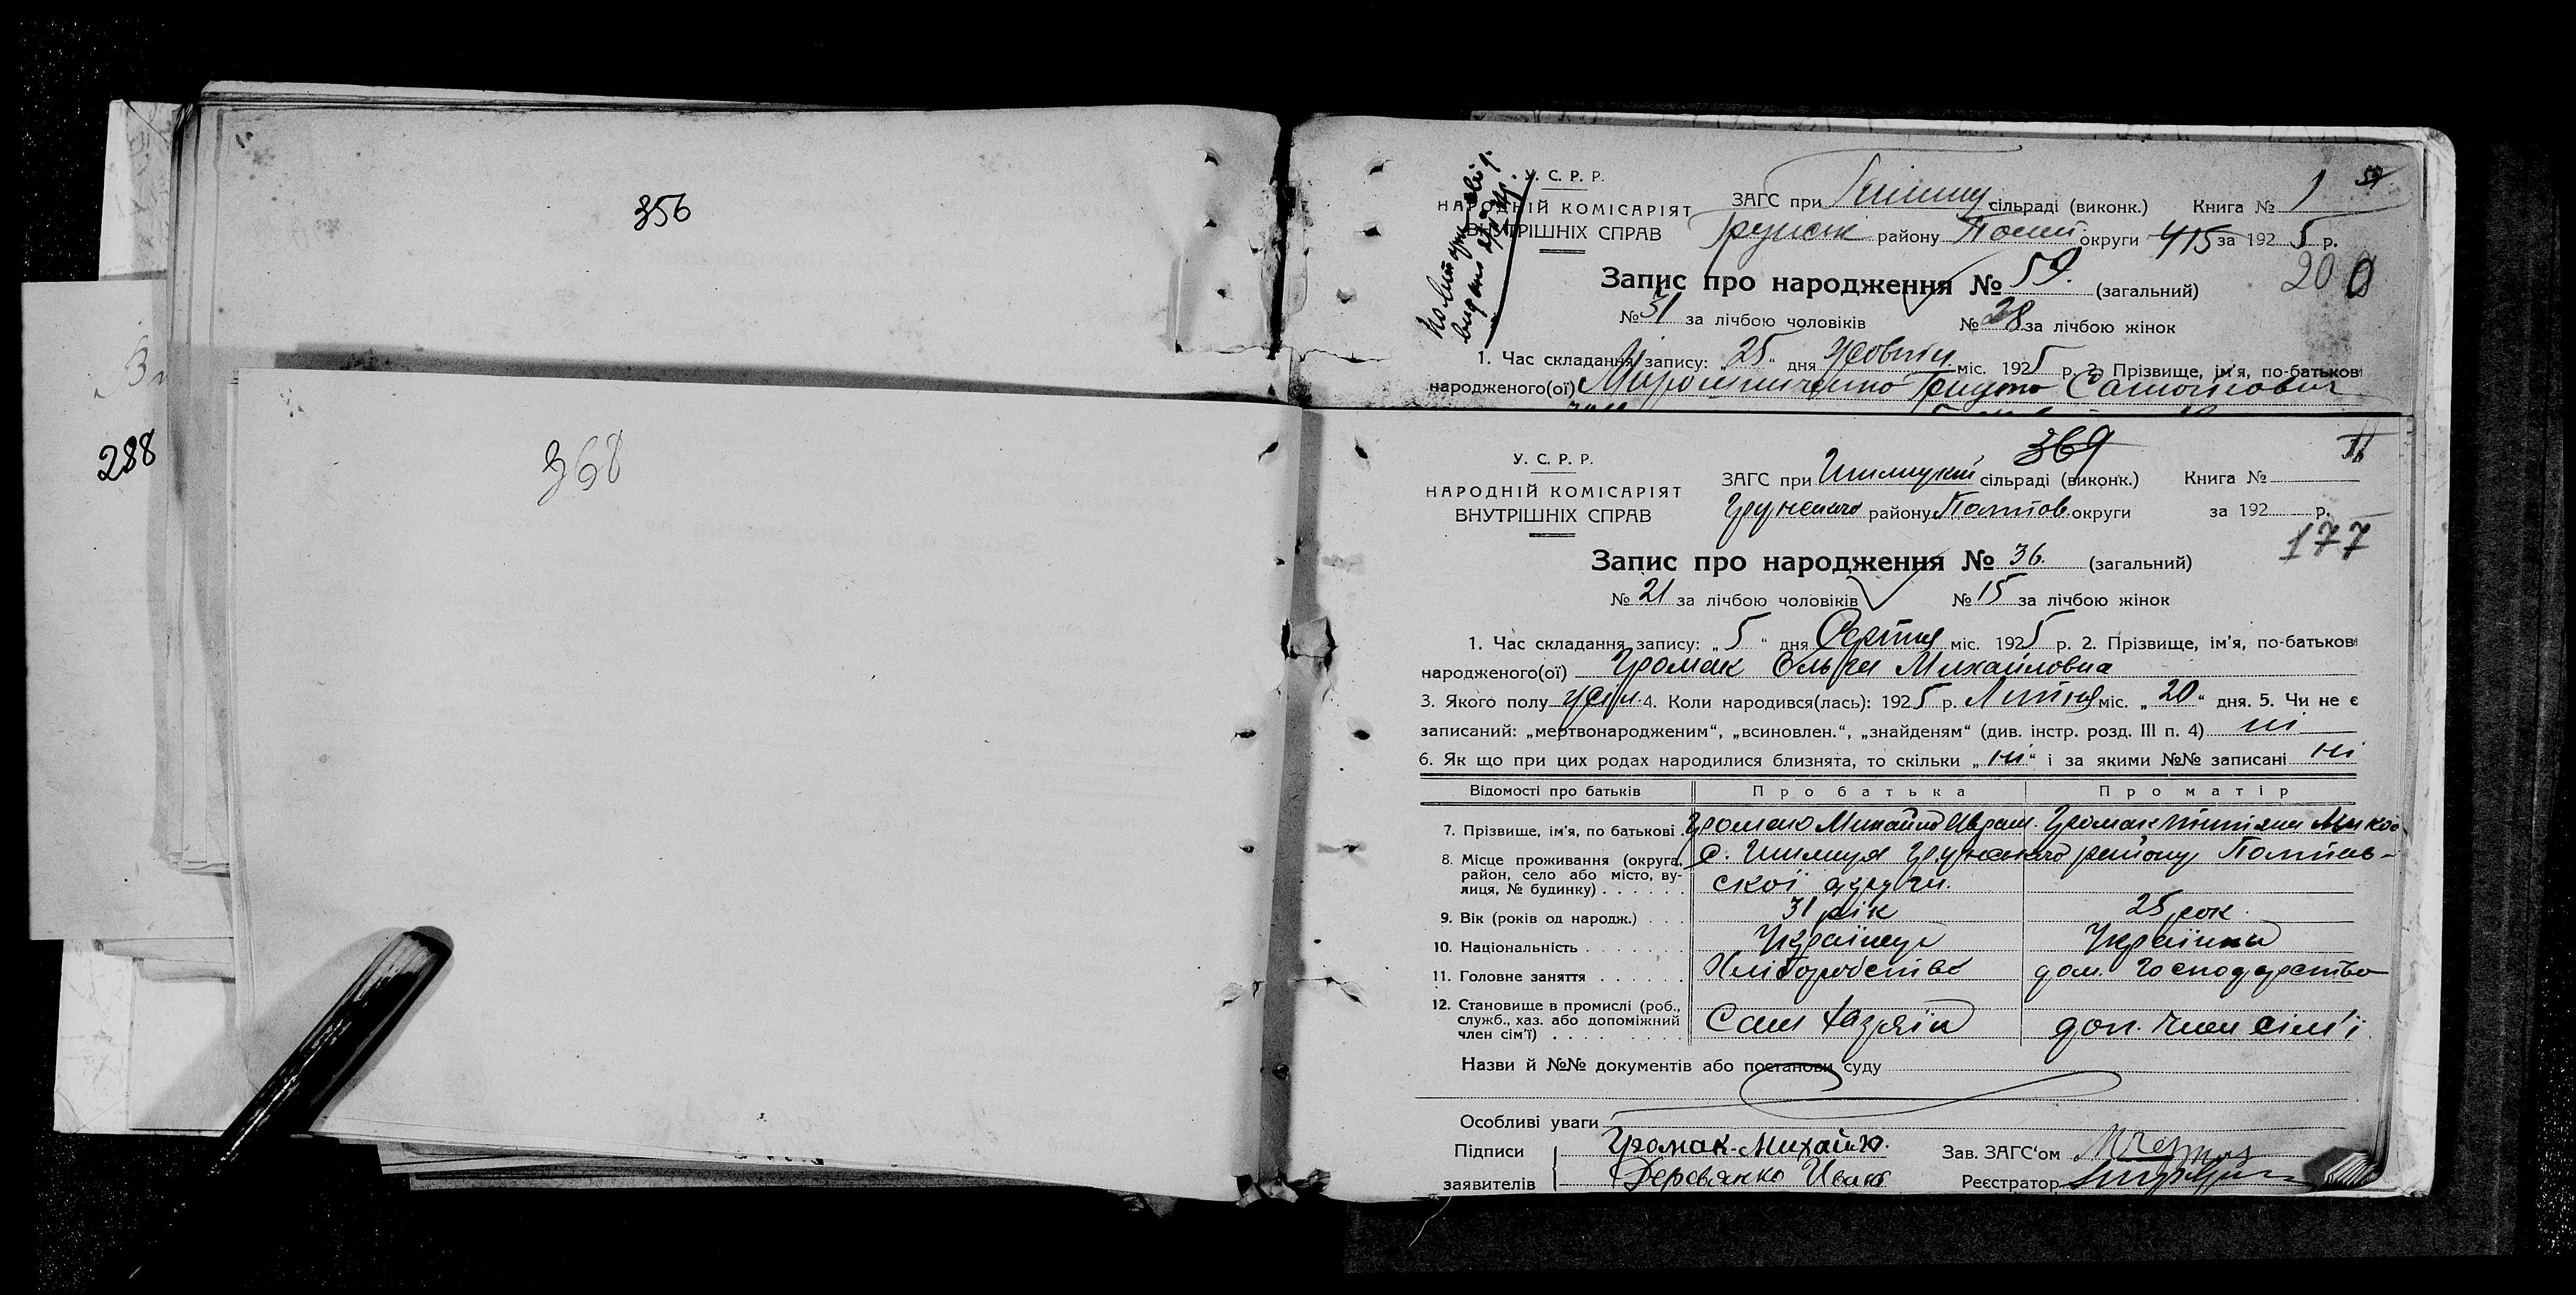 356
288
368
У. С. Р. Р.
НАРОДНІЙ КОМІСАРІЯТ
ВНУТРІШНІХ СПРАВ
ЗАГС при сільраді (виконк.) Книга № 1
Грунськ району Полт округи 415 за 1925 р.
200
Запис про народження № 59. (загальний)
№ 31 за лічбою чоловіків № 28 за лічбою жінок
1. Час складання запису: „25“ дня Жовтня міс. 1925 р. 2. Прізвище, ім'я, по-батькові
народженого(ої) Мирошниченко
369
У. С. Р. Р.
НАРОДНІЙ КОМІСАРІЯТ
ВНУТРІШНІХ СПРАВ
ЗАГС при сільраді (виконк.) Книга №
Грунського району Полтов. округи за 192 р.
177
Запис про народження № 36. (загальний)
№ 21 за лічбою чоловіків № 15 за лічбою жінок
1. Час складання запису: „5“ дня Серпня міс. 1925 р. 2. Прізвище, ім'я, по-батькові
народженого(ої) Громак Ольга Михайловна
3. Якого полу жін. 4. Коли народився(лась): 1925 р. Липня міс. „20“ дня. 5. Чи не є
записаний: „мертвонародженим“, „всиновлен.“, „знайденям“ (див. інстр. розд. III п. 4) ні
6. Як що при цих родах народилися близнята, то скільки „ні“ і за якими №№ записані ні
Відомості про батьків Про батька Про матір
7. Прізвище, ім'я, по батькові Громак Михайло Громак
8. Місце проживання (округа, район, село або місто, вулиця, № будинку) с. Грунського району Полтавської округи.
9. Вік (років од народж.) 31 рік 25 рок.
10. Національність Українець Українка
11. Головне заняття Хліборобство дом. господарство
12. Становище в промислі (роб., служб., хаз. або допоміжний член сім'ї) Сам хазяїн доп. член сім'ї
Назви й №№ документів або постанови суду
Особливі уваги
Підписи Громак Михайло. Зав. ЗАГС'ом
заявителів Деревянко Иван Реєстратор